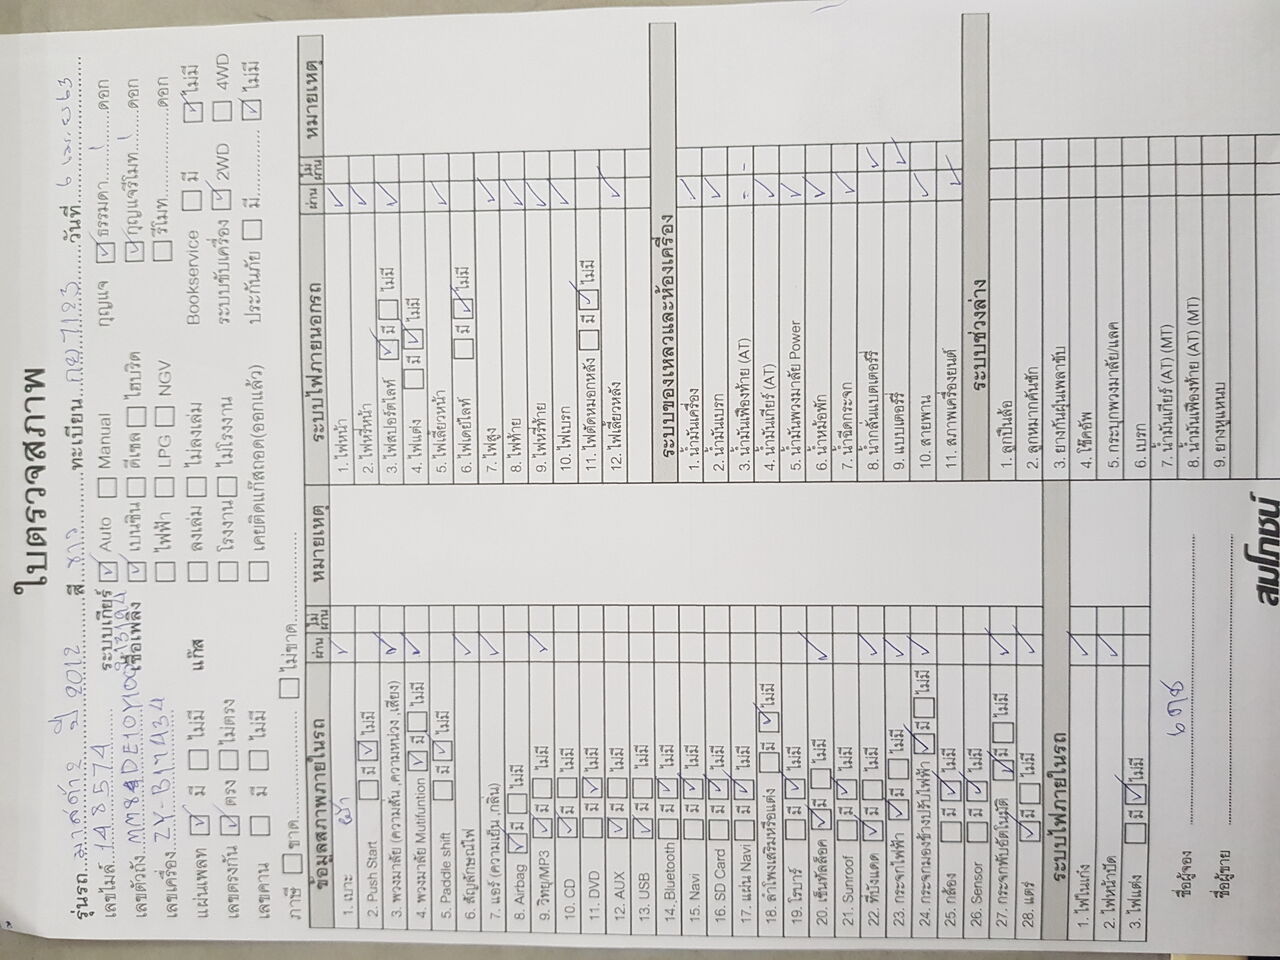 ใบตรวจสภาพ
รุ่นรถ...มาสด้า 2 ปี 2012...สี...ขาว...ทะเบียน...กย 7123...วันที่...6 เม.ย 63...
เลขไมล์...148574... ระบบเกียร์ ☑ Auto ☐ Manual กุญแจ ☑ ธรรมดา...1...ดอก
เลขตัวถัง... เชื้อเพลิง ☑ เบนซิน ☐ ดีเซล ☐ ไฮบริด ☑ กุญแจรีโมท...1...ดอก
เลขเครื่อง...ZY-B17434... ☐ ไฟฟ้า ☐ LPG ☐ NGV ☐ รีโมท...ดอก
แผ่นเพลท ☑ มี ☐ ไม่มี แก๊ส ☐ ลงเล่ม ☐ ไม่ลงเล่ม Bookservice ☐ มี ☑ ไม่มี
เลขตรงกัน ☑ ตรง ☐ ไม่ตรง ☐ โรงงาน ☐ ไม่โรงงาน ระบบขับเครื่อง ☑ 2WD ☐ 4WD
เลขคาน ☐ มี ☐ ไม่มี ☐ เคยติดแก๊สถอด(ออกแล้ว) ประกันภัย ☐ มี... ☑ ไม่มี
ภาษี ☐ ขาด... ☐ ไม่ขาด...
ข้อมูลสภาพภายในรถ ผ่าน ไม่ผ่าน หมายเหตุ
1. เบาะ ✓
2. Push Start ☐ มี ☑ ไม่มี
3. พวงมาลัย (ความสั่น ,ความหน่วง ,เสียง) ✓
4. พวงมาลัย Mutifuntion ☑ มี ☐ ไม่มี ✓
5. Paddle shift ☐ มี ☑ ไม่มี
6. สัญลักษณ์ไฟ ✓
7. แอร์ (ความเย็น ,กลิ่น) ✓
8. Airbag ☑ มี ☐ ไม่มี
9. วิทยุ/MP3 ☑ มี ☐ ไม่มี ✓
10. CD ☑ มี ☐ ไม่มี
11. DVD ☐ มี ☑ ไม่มี
12. AUX ☑ มี ☐ ไม่มี
13. USB ☑ มี ☐ ไม่มี
14. Bluetooth ☐ มี ☑ ไม่มี
15. Navi ☐ มี ☑ ไม่มี
16. SD Card ☐ มี ☑ ไม่มี
17. แผ่น Navi ☐ มี ☑ ไม่มี
18. ลำโพงเสริมหรือแต่ง ☐ มี ☑ ไม่มี
19. โรบาร์ ☐ มี ☑ ไม่มี
20. เซ็นทัลล็อค ☑ มี ☐ ไม่มี ✓
21. Sunroof ☐ มี ☑ ไม่มี
22. ที่บังแดด ☑ มี ☐ ไม่มี ✓
23. กระจกไฟฟ้า ☑ มี ☐ ไม่มี ✓
24. กระจกมองข้างปรับไฟฟ้า ☑ มี ☐ ไม่มี ✓
25. กล้อง ☐ มี ☑ ไม่มี
26. Sensor ☐ มี ☑ ไม่มี
27. กระจกพับอัตโนมัติ ☑ มี ☐ ไม่มี ✓
28. แตร์ ☑ มี ☐ ไม่มี ✓
ระบบไฟภายในรถ
1. ไฟในเก๋ง ✓
2. ไฟหน้าปัด ✓
3. ไฟแต่ง ☐ มี ☑ ไม่มี
ระบบไฟภายนอกรถ ผ่าน ไม่ผ่าน หมายเหตุ
1. ไฟหน้า ✓
2. ไฟหรี่หน้า ✓
3. ไฟสปอร์ตไลท์ ☑ มี ☐ ไม่มี ✓
4. ไฟแต่ง ☐ มี ☑ ไม่มี
5. ไฟเลี้ยวหน้า ✓
6. ไฟเดย์ไลท์ ☐ มี ☑ ไม่มี
7. ไฟสูง ✓
8. ไฟท้าย ✓
9. ไฟหรี่ท้าย ✓
10. ไฟเบรก ✓
11. ไฟตัดหมอกหลัง ☐ มี ☑ ไม่มี
12. ไฟเลี้ยวหลัง ✓
ระบบของเหลวและห้องเครื่อง
1. น้ำมันเครื่อง ✓
2. น้ำมันเบรก ✓
3. น้ำมันเฟืองท้าย (AT) - -
4. น้ำมันเกียร์ (AT) ✓
5. น้ำมันพวงมาลัย Power ✓
6. น้ำหม้อพัก ✓
7. น้ำฉีดกระจก ✓
8. น้ำกลั่นแบตเตอร์รี่ ✓
9. แบบเตอร์รี่ ✓
10. สายพาน ✓
11. สภาพเครื่องยนต์ ✓
ระบบช่วงล่าง
1. ลูกปืนล้อ
2. ลูกหมากคันชัก
3. ยางกันฝุ่นเพลาขับ
4. โช๊คอัพ
5. กระปุกพวงมาลัย/แลค
6. เบรก
7. น้ำมันเกียร์ (AT) (MT)
8. น้ำมันเฟืองท้าย (AT) (MT)
9. ยางหูแหนบ
ชื่อผู้จอง...
ชื่อผู้ขาย...
สมโภชน์